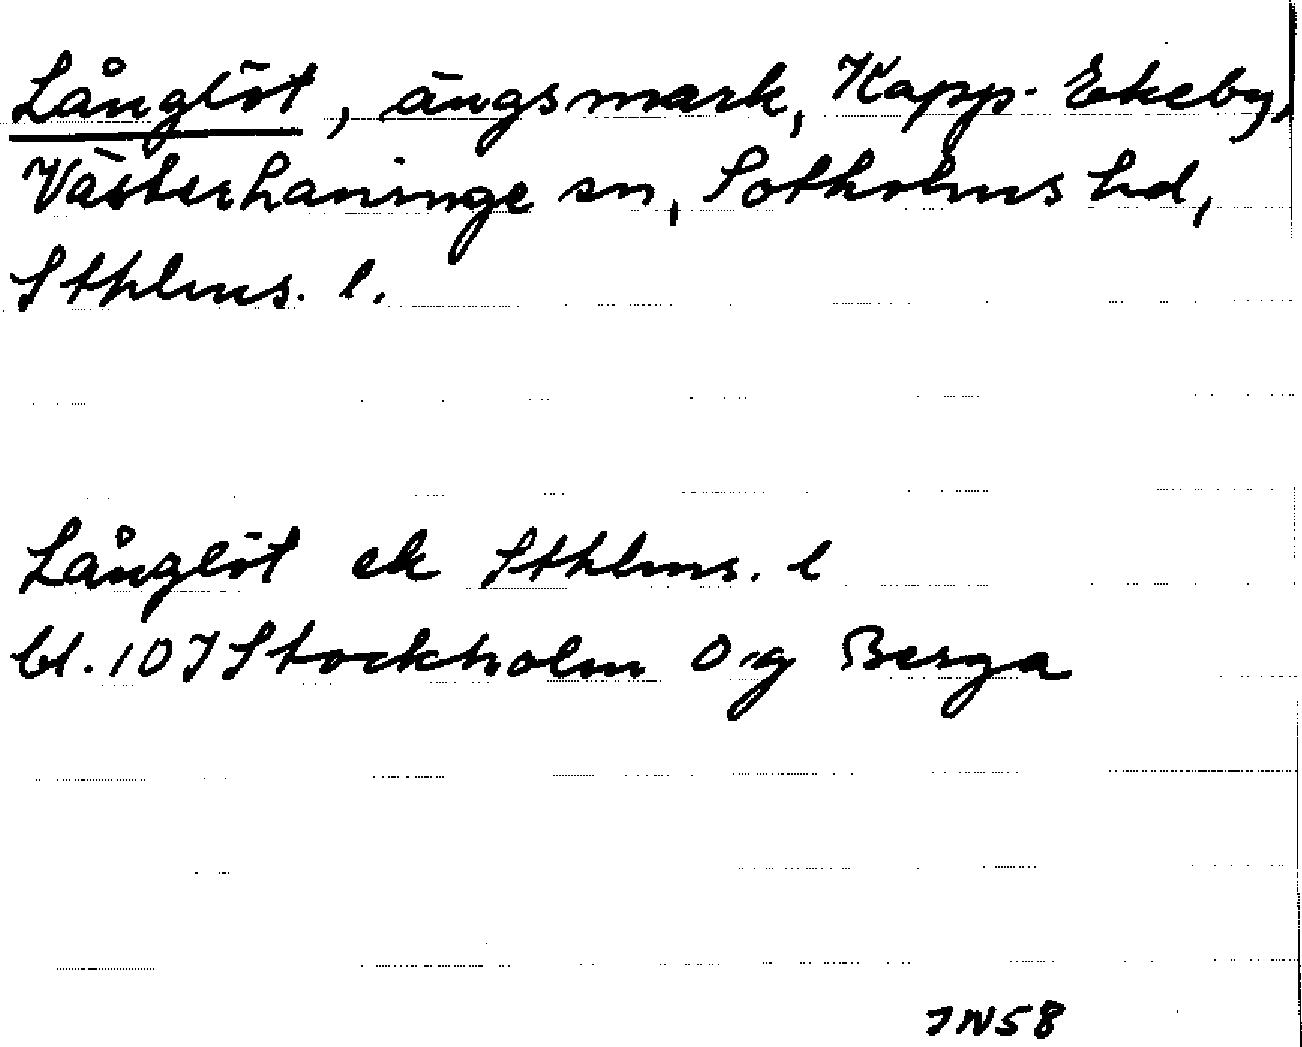 Långlöt, ängsmark, Kapp-Ekeby,
Västerhaninge sn, Sotholms hd,
Sthlms. l.
Långlöt ek Sthlms. l
bl. 10I Stockholm 0,9 Berga
JN58